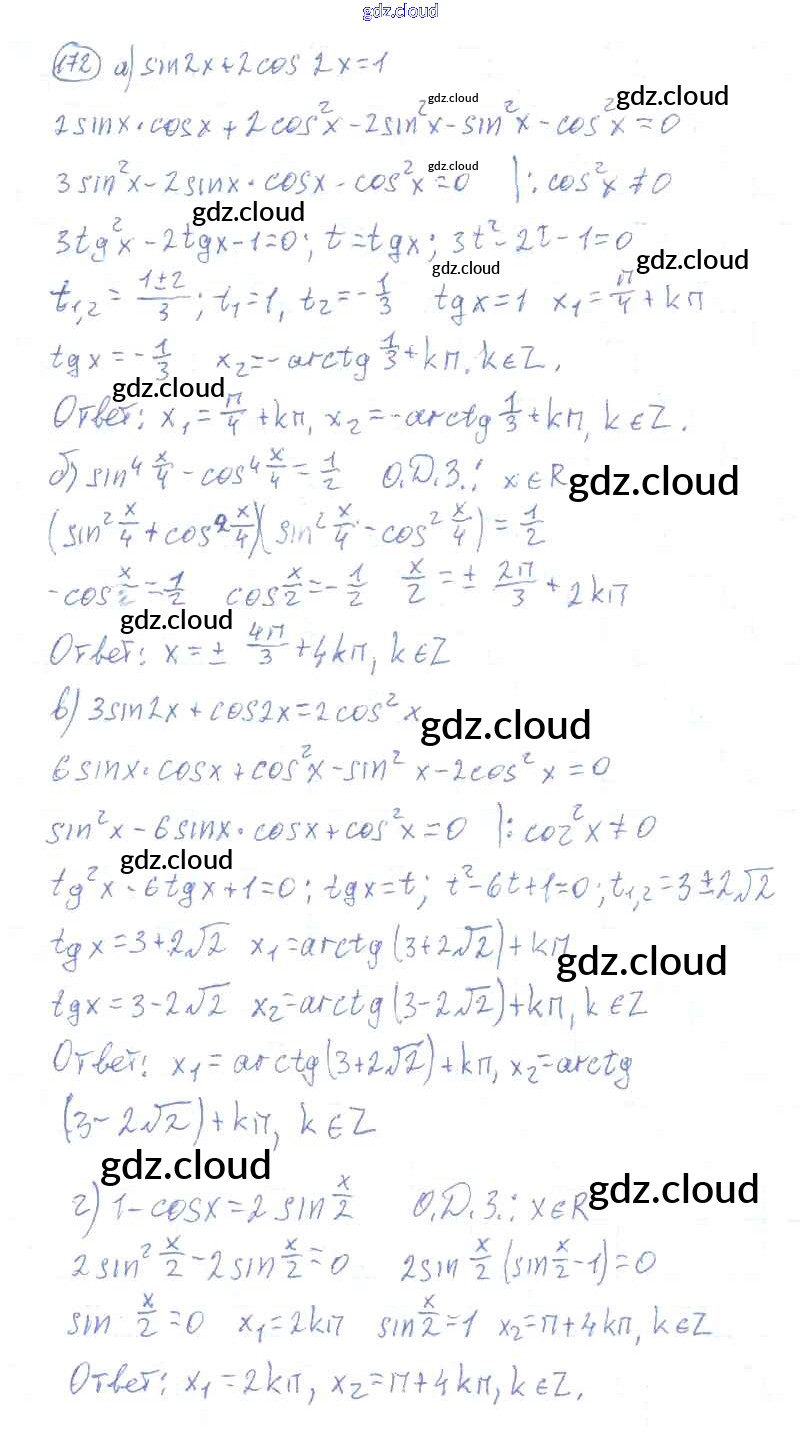 gdz.cloud
172 а) sin2x+2cos 2x=1
gdz.cloud
gdz.cloud
2sinx·cosx+2cos²x-2sin²x-sin²x-cos²x=0
gdz.cloud
3sin²x-2sinx·cosx-cos²x=0 |:cos²x≠0
gdz.cloud
3tg²x-2tgx-1=0; t=tgx; 3t²-2t-1=0
gdz.cloud
gdz.cloud
t₁,₂=(1±2)/3; t₁=1, t₂=-1/3 tgx=1 x₁=π/4+kπ
tgx=-1/3 x₂=-arctg 1/3+kπ, k∈Z.
gdz.cloud
Ответ: x₁=π/4+kπ, x₂=-arctg 1/3+kπ, k∈Z.
б) sin⁴ x/4 - cos⁴ x/4 = 1/2 О.Д.З.: x∈R
gdz.cloud
(sin² x/4 + cos² x/4)(sin² x/4 - cos² x/4) = 1/2
-cos x/2 = 1/2 cos x/2 = -1/2 x/2 = ± 2π/3 + 2kπ
gdz.cloud
Ответ: x=± 4π/3+4kπ, k∈Z
в) 3sin2x+cos2x=2cos²x
gdz.cloud
6sinx·cosx+cos²x-sin²x-2cos²x=0
sin²x-6sinx·cosx+cos²x=0 |:coz²x≠0
gdz.cloud
tg²x-6tgx+1=0; tgx=t; t²-6t+1=0; t₁,₂=3±2√2
tgx=3+2√2 x₁=arctg(3+2√2)+kπ
gdz.cloud
tgx=3-2√2 x₂=arctg(3-2√2)+kπ, k∈Z
Ответ: x₁=arctg(3+2√2)+kπ, x₂=arctg
(3-2√2)+kπ, k∈Z
gdz.cloud
gdz.cloud
г) 1-cosx=2sin x/2 О.Д.З.: x∈R
2sin² x/2-2sin x/2=0 2sin x/2 (sin x/2-1)=0
sin x/2=0 x₁=2kπ sin x/2=1 x₂=π+4kπ, k∈Z
Ответ: x₁=2kπ, x₂=π+4kπ, k∈Z.